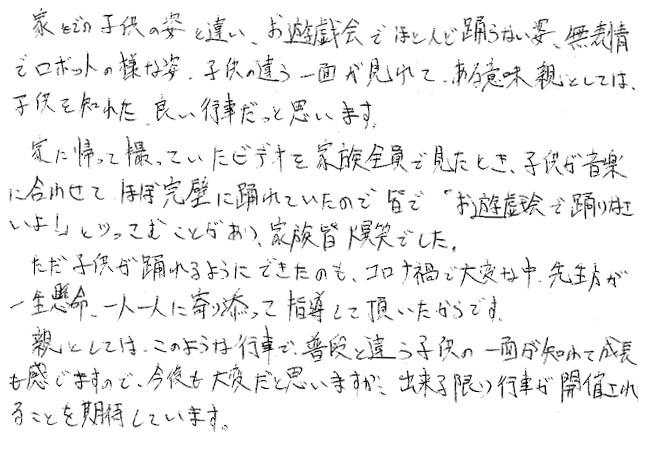 家での子供の姿と違い、お遊戯会でほとんど踊らない姿、無表情
でロボットの様な姿、子供の違う一面が見れて、ある意味親としては、
子供を知れた、良い行事だっと思います。
家に帰って撮っていたビデオを家族全員で見たとき、子供が音楽
に合わせて、ほぼ完璧に踊れていたので皆で「お遊戯会で踊りなさ
いよ!」とツッこむことがあり、家族皆爆笑でした。
ただ子供が踊れるようにできたのも、コロナ禍で大変な中、先生方が
一生懸命、一人一人に寄り添って指導して頂いたからです。
親としては、このような行事で、普段と違う子供の一面が知れて成長
も感じますので、今後も大変だと思いますが、出来る限り行事が開催され
ることを期待しています。